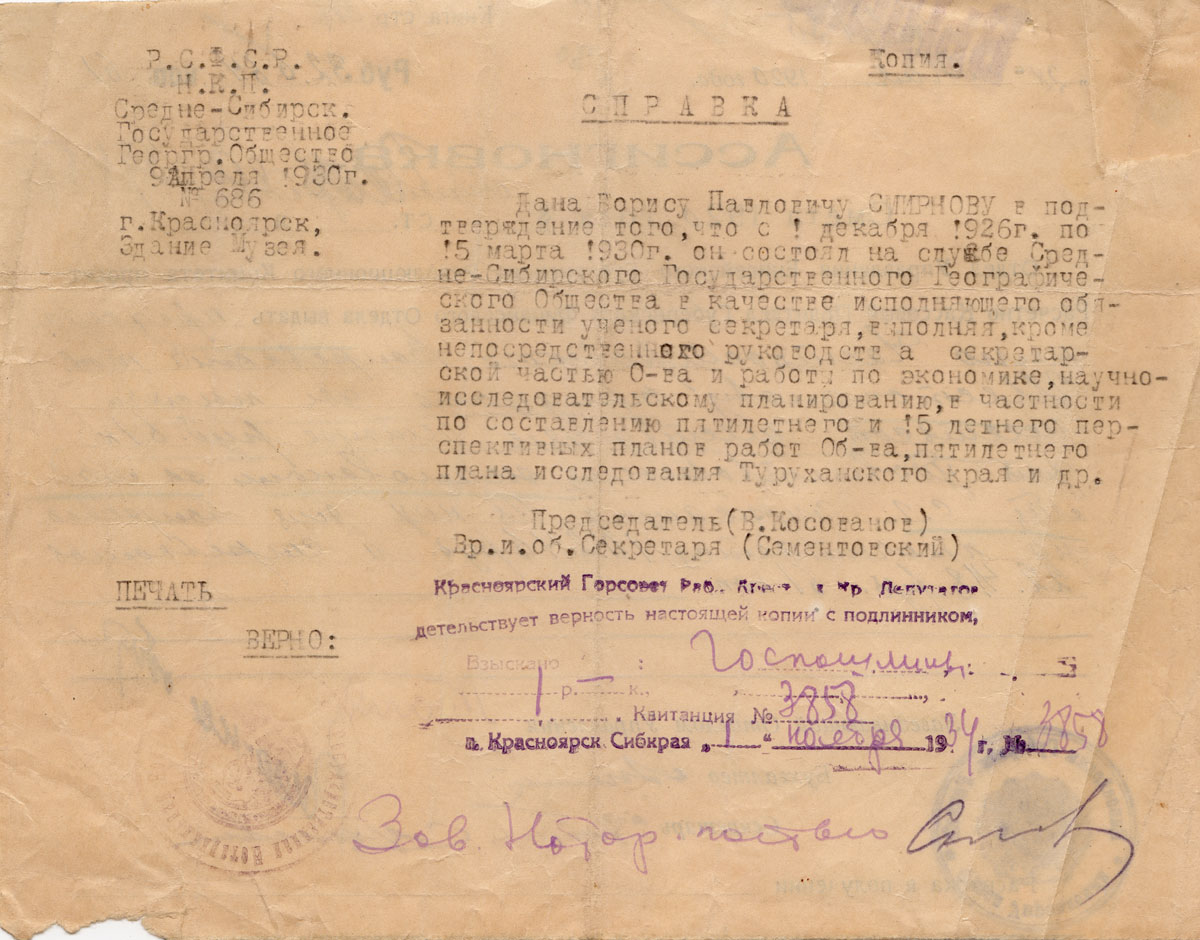 Р.С.Ф.С.Р.
Н.К.П.
Средне-Сибирск.
Государственное
Геогр.Общество
9 Апреля 1930г.
№ 686
г.Красноярск,
Здание Музея.
Копия.
СПРАВКА
Дана Борису Павловичу СМИРНОВУ в под-
тверждение того,что с 1 декабря 1926г. по
15 марта 1930г. он состоял на службе Сред-
не-Сибирского Государственного Географиче-
ского Общества в качестве исполняющего обя-
занности ученого секретаря,выполняя,кроме
непосредственного руководств а секретар-
ской частью О-ва и работы по экономике,научно-
исследовательскому планированию,в частности
по составлению пятилетнего и 15 летнего пер-
спективных планов работ Об-ва,пятилетнего
плана исследования Туруханского края и др.
Председатель(В.Косованов)
Вр.и.об.Секретаря (Сементовский)
ПЕЧАТЬ
ВЕРНО:
Красноярский Горсовет Раб., Крест. и Кр. Депутатов
детельствует верность настоящей копии с подлинником,
Взыскано : Госпошлины:
1 р. — к.,
Квитанция № 3858
г. Красноярск Сибкрая „ 1 “ ноября 1934 г. № 3858
Зав. Нотар
Ассигновка
Отдела выдать
1930 года
Руб.